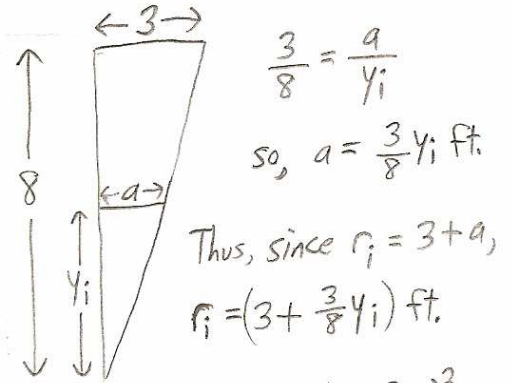 ← 3 →
8
← a →
yᵢ
3/8 = a/yᵢ
so, a = 3/8 yᵢ ft.
Thus, since rᵢ = 3 + a,
rᵢ = (3 + 3/8 yᵢ) ft.